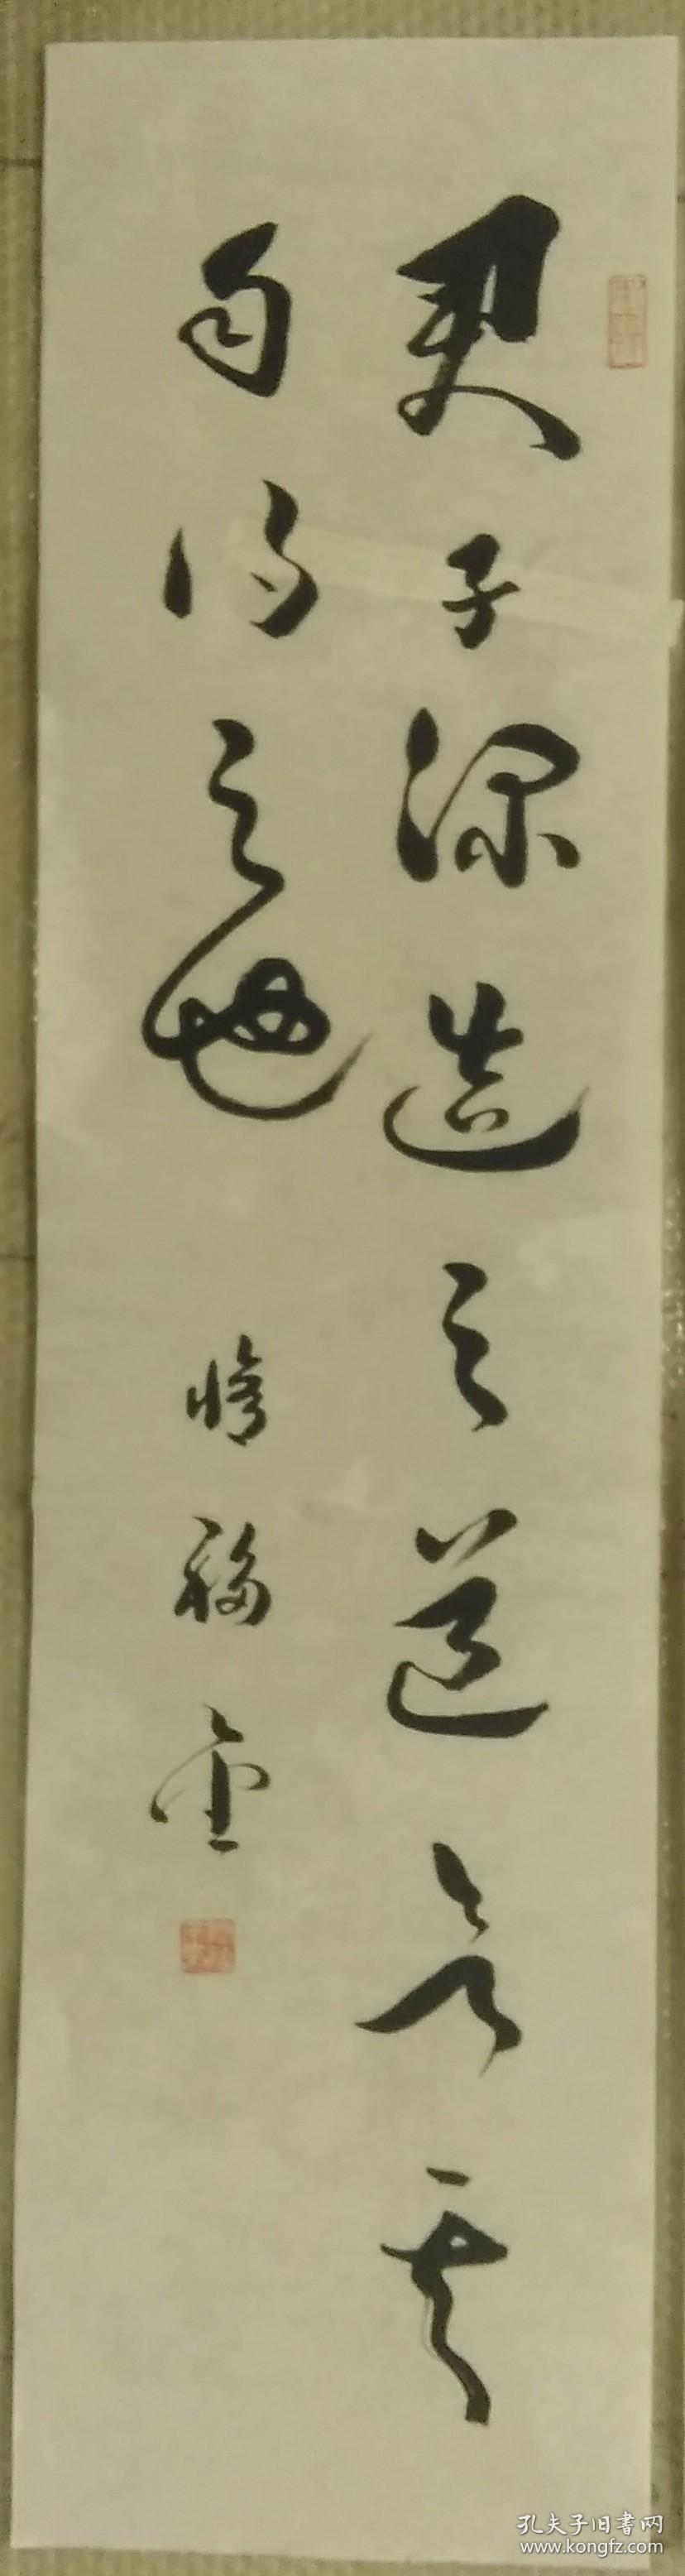 君子深造之道欲其
自得之也
孔夫子旧书网
www.kongfz.com